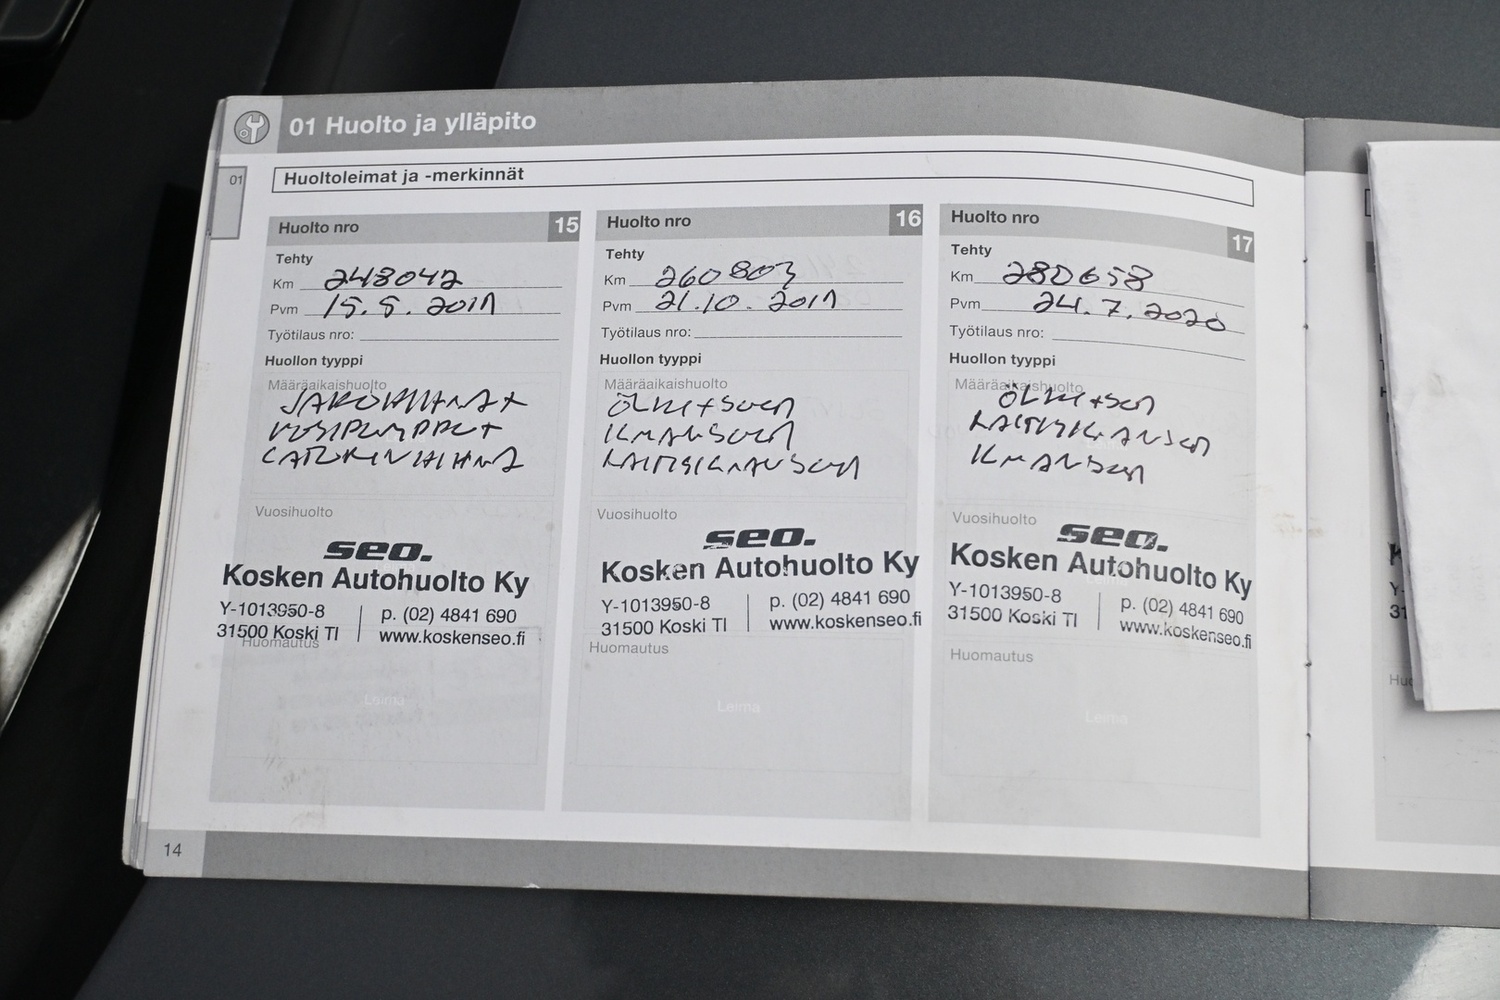 01 Huolto ja ylläpito
01
Huoltoleimat ja -merkinnät
Huolto nro 15
Tehty
Km 248042
Pvm 15.5.2019
Työtilaus nro:
Huollon tyyppi
Määräaikaishuolto
JAKOHIHNA+
VESIPUMPPU+
LATURINHIHNA
Vuosihuolto
seo.
Koski Autohuolto Ky
Y-1013950-8 p. (02) 4841 690
31500 Koski Tl www.koskenseo.fi
Huomautus
Leima
Huolto nro 16
Tehty
Km 260803
Pvm 21.10.2019
Työtilaus nro:
Huollon tyyppi
Määräaikaishuolto
ÖLJY+SUOD
ILMANSUOD
RAITISILMANSUOD
Vuosihuolto
seo.
Kosken Autohuolto Ky
Y-1013950-8 p. (02) 4841 690
31500 Koski Tl www.koskenseo.fi
Huomautus
Leima
Huolto nro 17
Tehty
Km 280658
Pvm 24.7.2020
Työtilaus nro:
Huollon tyyppi
Määräaikaishuolto
ÖLJY+SUOD
RAITISILMANSUOD
ILMANSUOD
Vuosihuolto
seo.
Kosken Autohuolto Ky
Y-1013950-8 p. (02) 4841 690
31500 Koski Tl www.koskenseo.fi
Huomautus
Leima
14